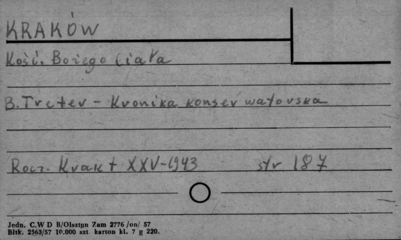 KRAKÓW
Kość. Bożego Ciała
B. Treter - Kronika konserwatorska
Rocz. Krak t XXV-1943 str 187
Jedn. C.W D B/Olsztyn Zam 2776 /on/ 57
Bltk. 2563/57 10.000 szt. karton kl. 7 g 220.